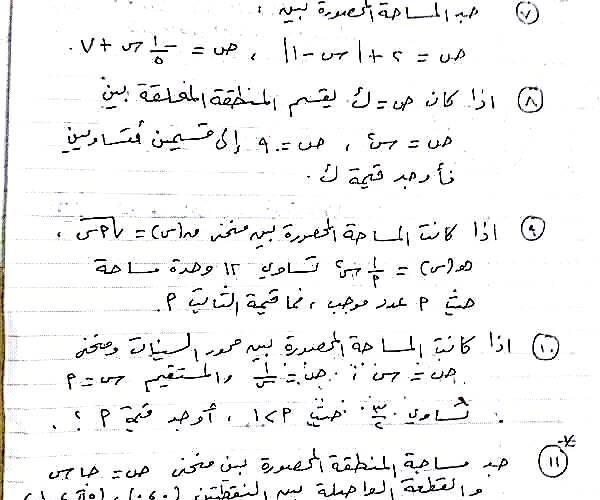 ٧ جد المساحة المحصورة بين :
ص = ٢ + |س - ١| ، ص = ١/٥ س + ٧ .
٨ اذا كان ص = ك يقسم المنطقة المغلقة بين
ص = س٢ ، ص = ٩ إلى قسمين متساويين
فأوجد قيمة ك .
٩ اذا كانت المساحة المحصورة بين منحنى ق(س) = √م س ،
هـ(س) = ١/م س٢ تساوي ١٢ وحدة مساحة
حيث م عدد موجب ، فما قيمة الثابت م .
١٠ اذا كانت المساحة المحصورة بين محور السينات ومنحنى
ص = س ، ص = ١/س والمستقيم س = م
تساوي ٣/٢ حيث م > ١ ، أوجد قيمة م ؟ .
١١ جد مساحة المنطقة المحصورة بين منحنى ص = جا س
والقطعة الواصلة بين النقطتين